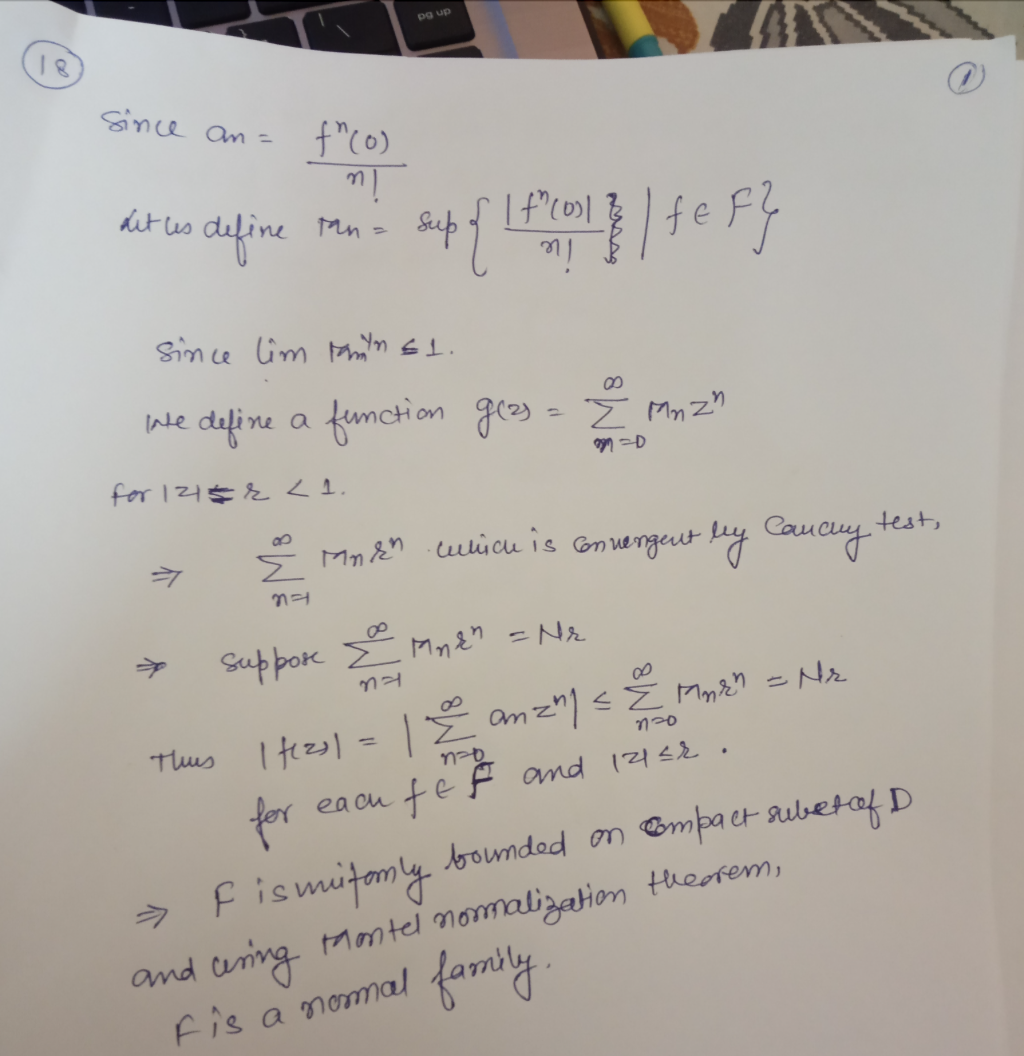 pg up
18
1
Since an = fⁿ(0)
n!
Let us define Mn = Sup { |fⁿ(0)| / n! | f ∈ F }
Since lim Mn^1/n ≤ 1.
We define a function g(z) = ∑_{n=0}^{∞} Mn zⁿ
for |z| ≤ r < 1.
⇒ ∑_{n=1}^{∞} Mn rⁿ which is convergent by Cauchy test,
⇒ Suppose ∑_{n=1}^{∞} Mn rⁿ = Nr
Thus |f(z)| = | ∑_{n=0}^{∞} an zⁿ | ≤ ∑_{n=0}^{∞} Mn rⁿ = Nr
for each f ∈ F and |z| ≤ r .
⇒ F is uniformly bounded on compact subset of D
and using Montel normalization theorem,
F is a normal family.